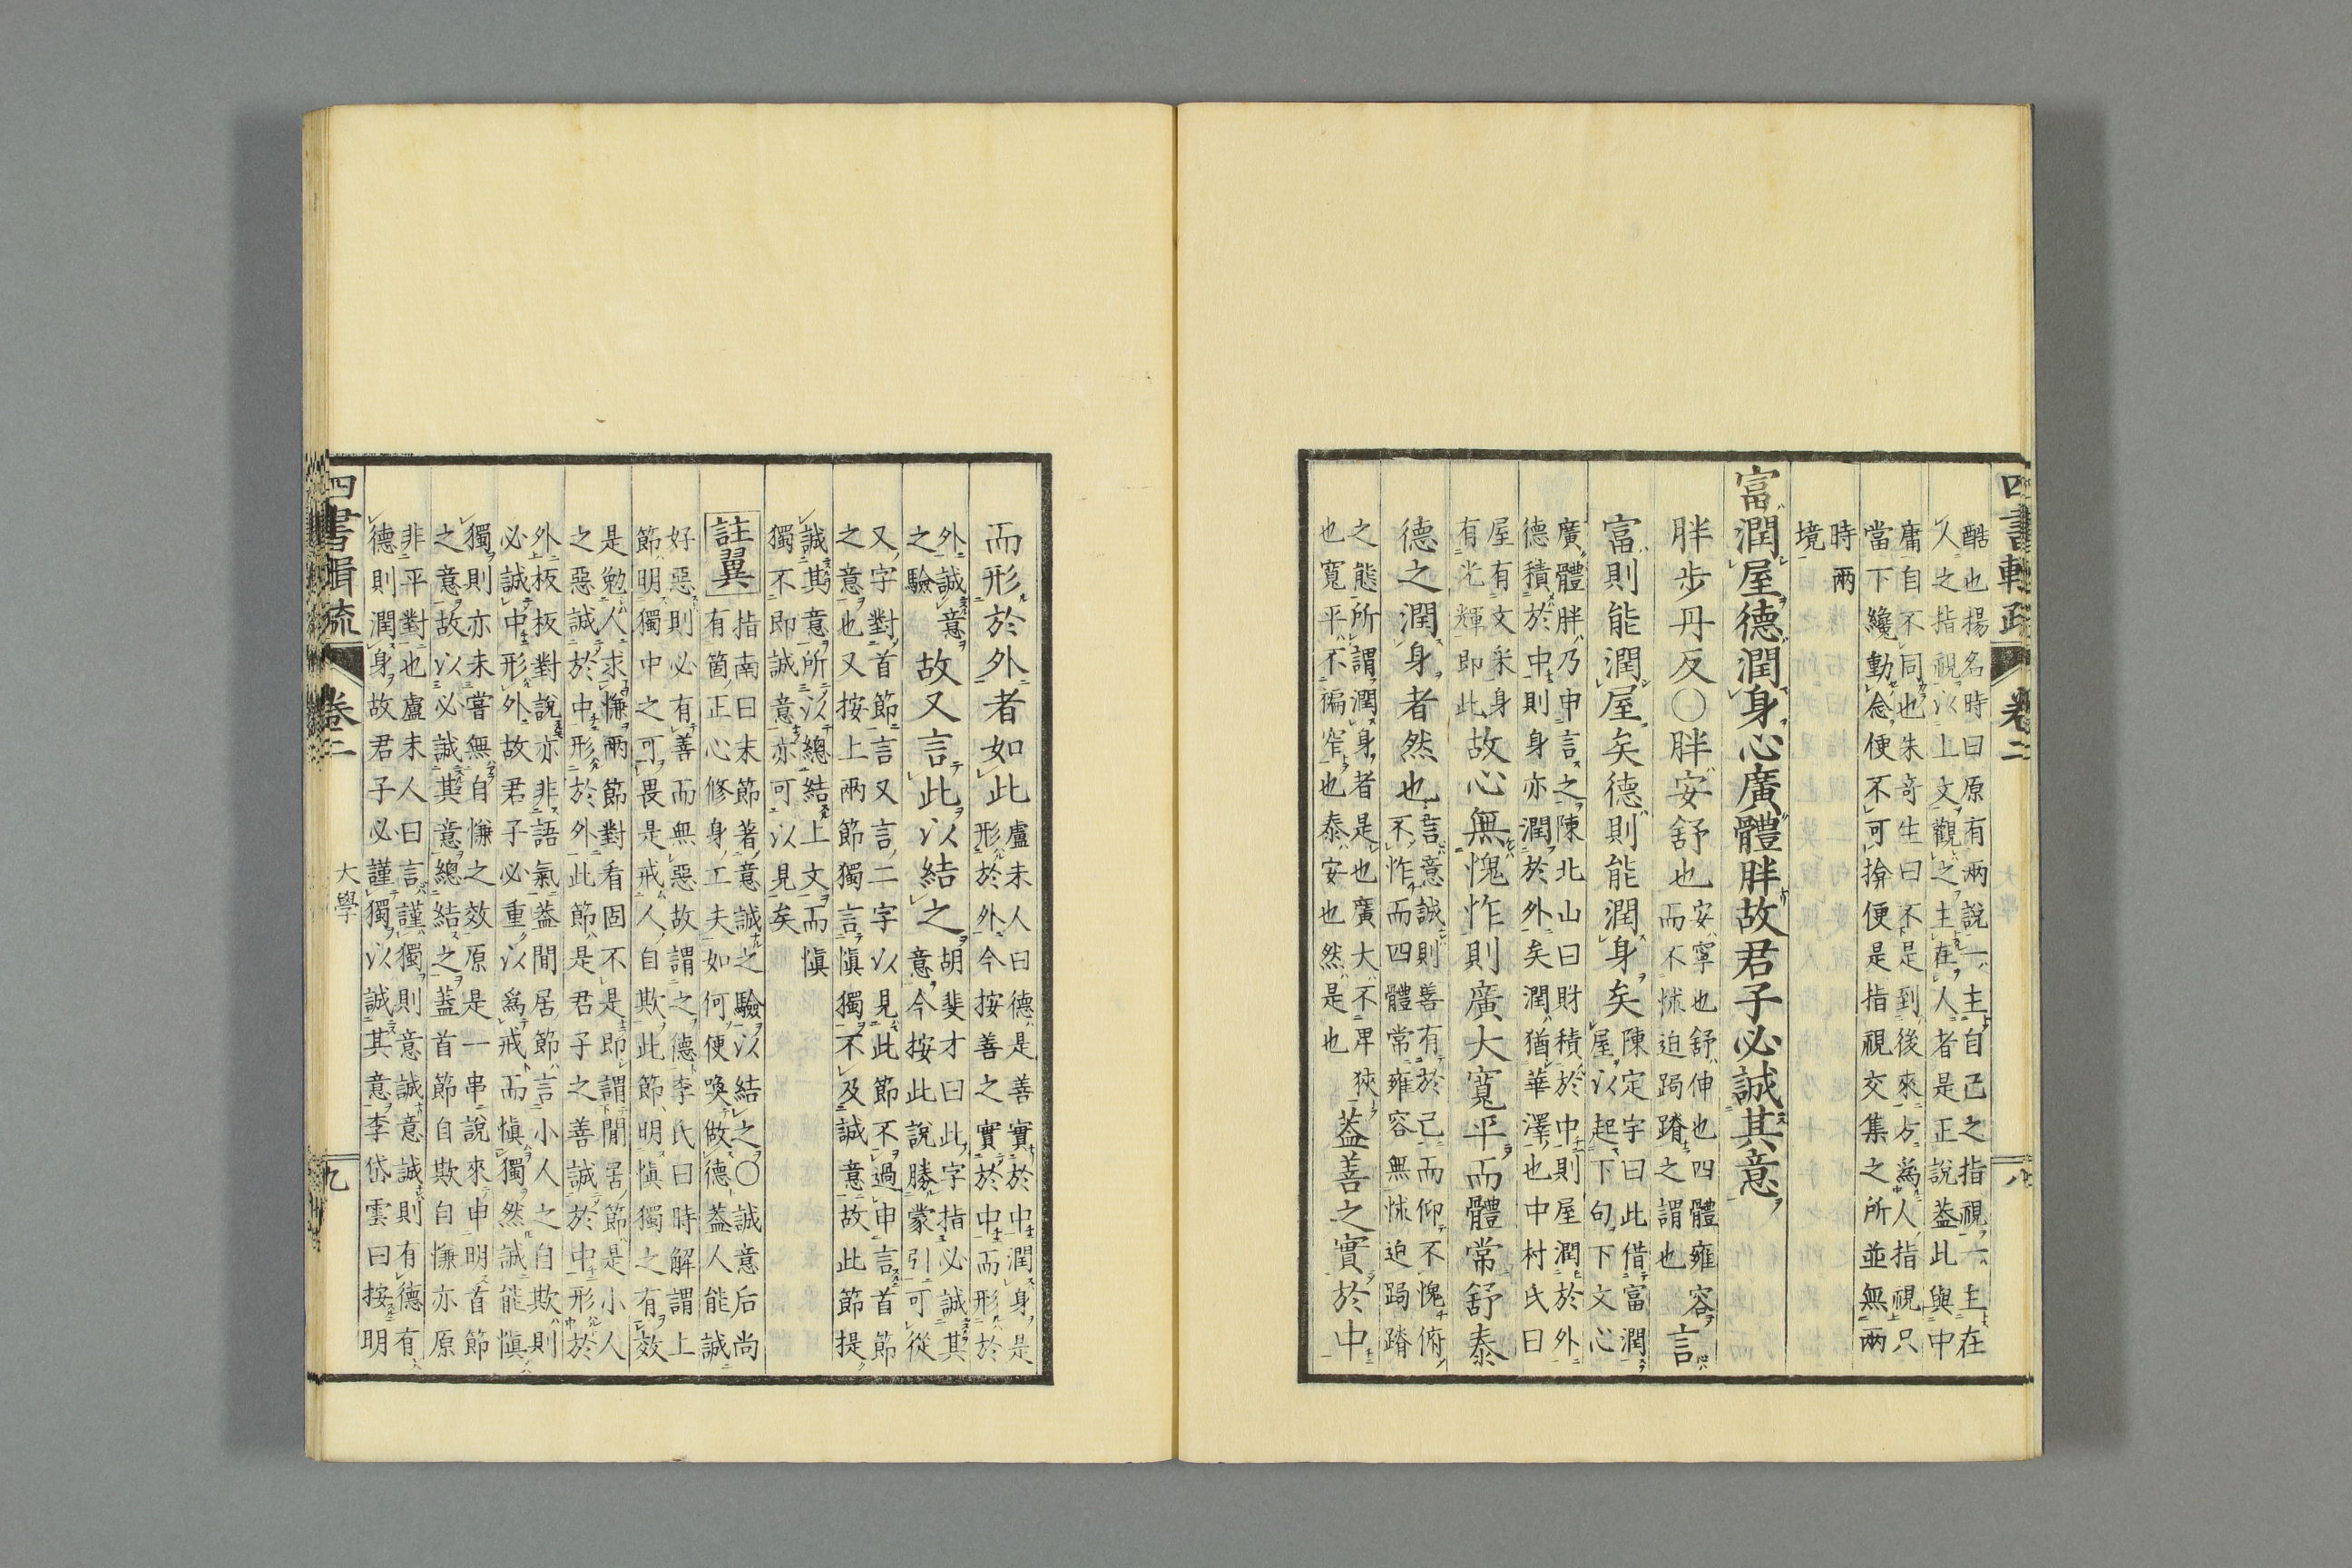 四書輯疏 卷二 八
酷也楊名時曰原有兩說一主自己之指視一主在
人之指視以上文觀之主在人者是正說葢此與中
庸自不同也朱竒生曰不是到後來方為人指視只
當下纔動念便不可揜便是指視交集之所並無兩
時兩
境
富潤屋德潤身心廣體胖故君子必誠其意
胖步丹反〇胖安舒也安寧也舒伸也四體雍容
而不怵迫跼蹐之謂也言
富則能潤屋矣德則能潤身矣陳定字曰此借富潤
屋以起下句下文心
廣體胖乃申言之陳北山曰財積於中則屋潤於外
德積於中則身亦潤於外矣潤猶華澤也中村氏曰
屋有文采身
有光輝即此故心無愧怍則廣大寬平而體常舒泰
德之潤身者然也言意誠則善有於己而仰不愧俯
不怍而四體常雍容無怵迫跼蹐
之態所謂潤身者是也廣大不畀狹
也寬平不褊窄也泰安也然是也葢善之實於中
而形於外者如此盧未人曰德是善實於中潤身是
形於外今按善之實於中而形於
外誠意
之驗故又言此以結之胡斐才曰此字指必誠其
意今按此說勝蒙引可從
又字對首節言又言二字以見此節不過申言首節
之意也又按上兩節獨言愼獨不及誠意故此節提
誠其意所以總結上文而愼
獨不即誠意亦可以見矣
註翼指南曰末節著意誠之驗以結之〇誠意后尚
有箇正心修身工夫如何便喚做德葢人能誠
好惡則必有善而無惡故謂之德李氏曰時解謂上
節明獨中之可畏是戒人自欺此節明愼獨之有效
是勉人求慊兩節對看固不是即謂閒居節是小人
之惡誠於中形於外此節是君子之善誠於中形於
外板板對說亦非語氣葢間居節言小人之自欺則
必誠中形外故君子必重以為戒而愼獨然誠能愼
獨則亦未嘗無自慊之效原是一串說來申明首節
之意故以必誠其意總結之葢首節自欺自慊亦原
非平對也盧未人曰言謹獨則意誠意誠則有德有
德則潤身故君子必謹獨以誠其意李岱雲曰按明
四書輯疏 卷二 大學 九